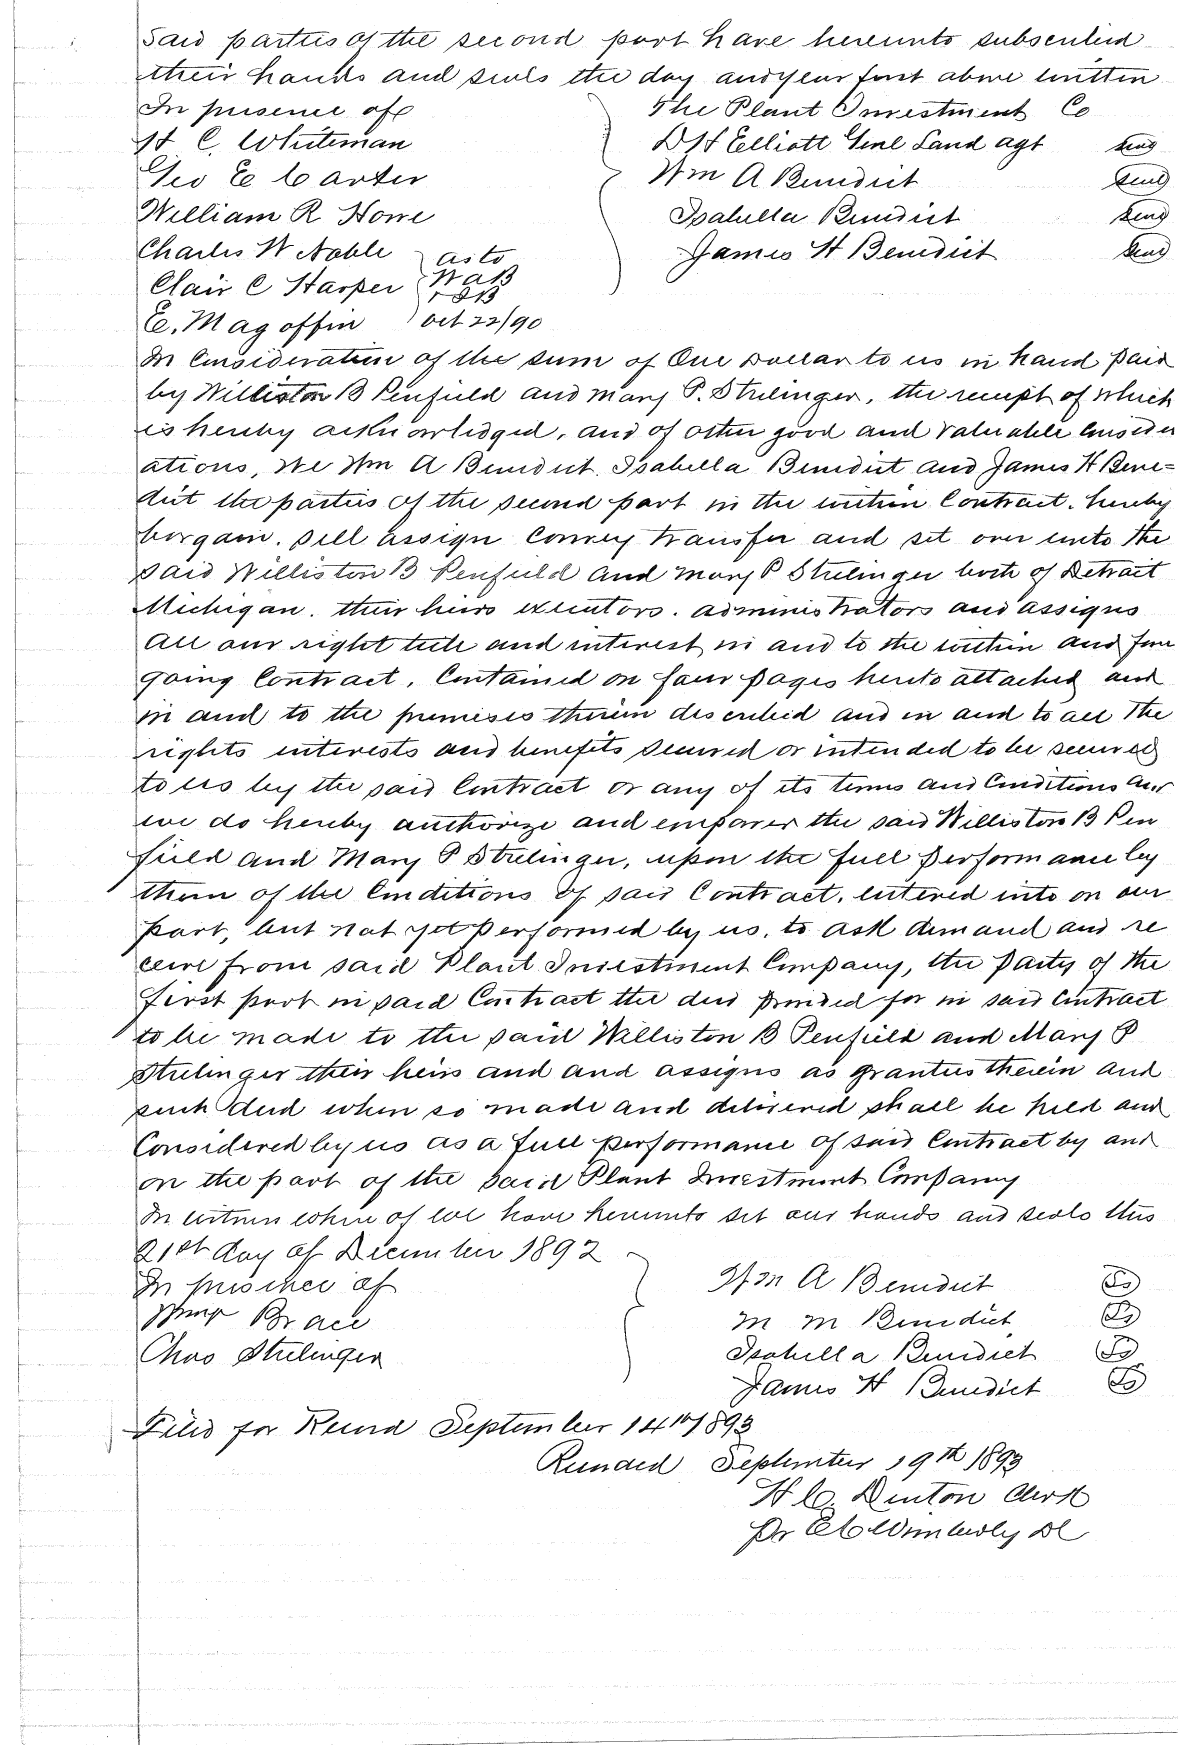 Said parties of the second part have hereunto subscribed
their hands and seals the day and year first above written
In presence of The Plant Investment Co
H C. Whiteman D H Elliott Genl Land agt Seal
Geo E Carter Wm A Benedict Seal
William R Howe Isabella Benedict Seal
Charles W Noble as to James H Benedict Seal
Clair C Harper WAB
& IB
E. Magoffin Oct 22/90
In Consideration of the sum of One Dollar to us in hand paid
by Williston B Penfield and Mary P. Strelinger, the receipt of which
is hereby acknowledged, and of other good and valuable consider
ations, We Wm A Benedict. Isabella Benedict and James H Bene=
dict the parties of the second part in the within Contract. hereby
bargain. sell assign Convey transfer and set over unto the
said Williston B Penfield and Mary P Strelinger both of Detroit
Michigan. their heirs executors. administrators and assigns
all our right title and interest in and to the within and fore
going Contract. Contained on four pages hereto attached and
in and to the premises therein described and in and to all the
rights interests and benefits secured or intended to be secured
to us by the said Contract or any of its terms and Conditions and
we do hereby authorize and empower the said Williston B Pen
field and Mary P Strelinger, upon the full performance by
them of the Conditions of said Contract. entered into on our
part, but not yet performed by us. to ask demand and re
ceive from said Plant Investment Company, the party of the
first part in said Contract the deed provided for in said Contract
to be made to the said Williston B Penfield and Mary P
Strelinger their heirs and and assigns as grantees therein and
such deed when so made and delivered shall be held and
Considered by us as a full performance of said Contract by and
on the part of the said Plant Investment Company
In witness whereof we have hereunto set our hands and seals this
21st day of December 1892
In presence of Wm A Benedict Ls
Brace M M Benedict Ls
Chas Strelinger Isabella Benedict Ls
James H Benedict Ls
Filed for Record September 14th 1893
Recorded September 19th 1893
H C. Denton Clerk
Pr E C Wimberly DC